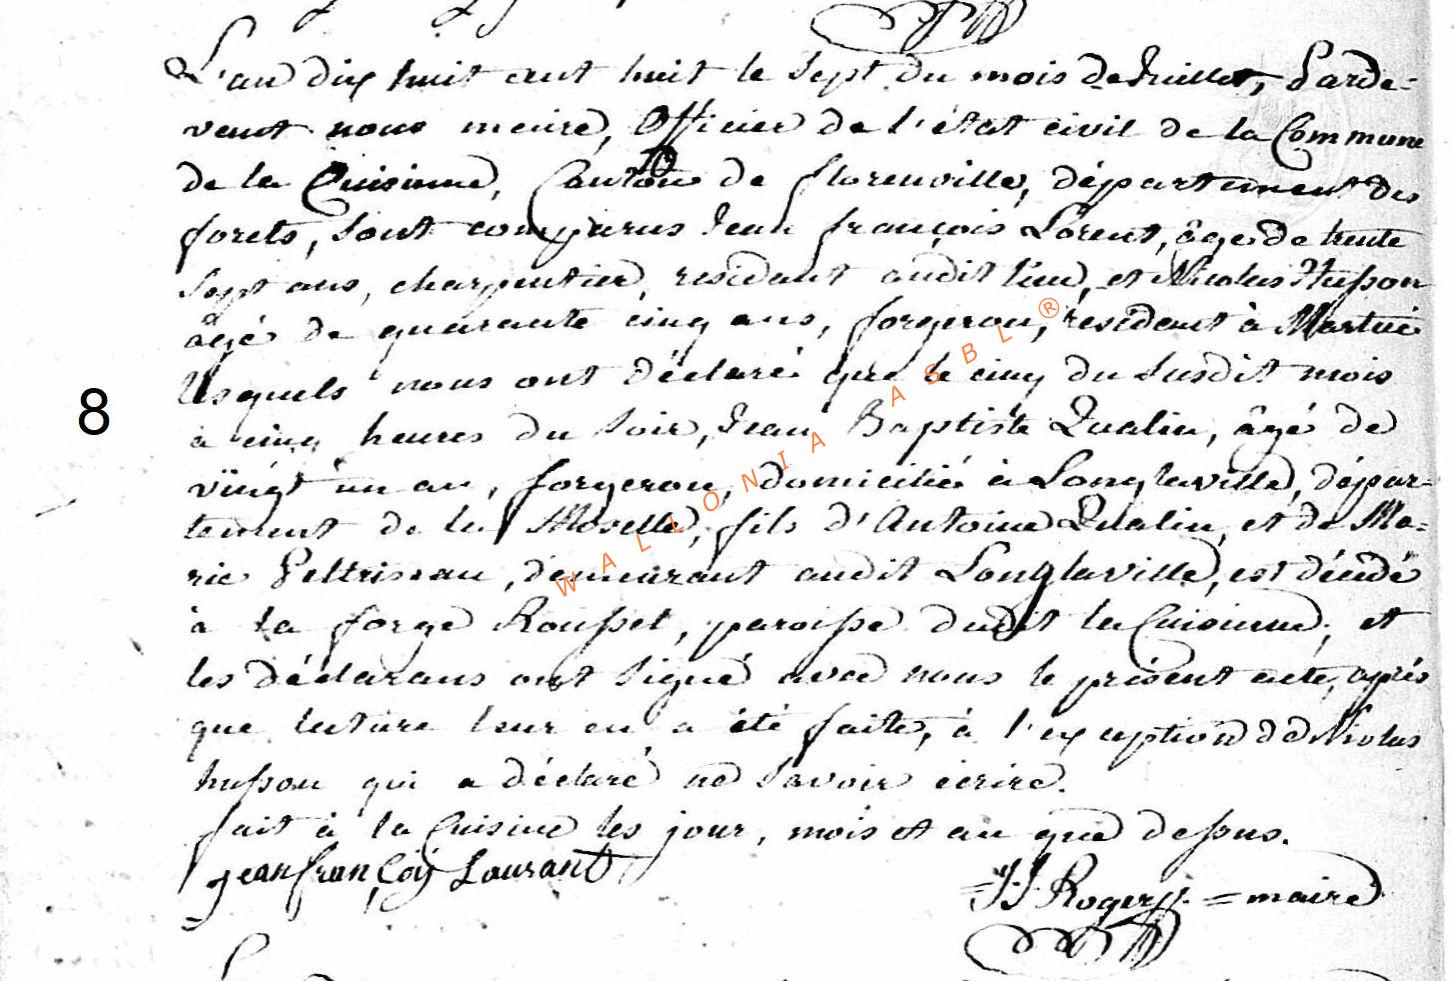 L'an dix huit cent huit le sept du mois de Juillet, Parde-
vant nous maire, Officier de l'état civil de la Commune
de la Cuisinne, Canton de florenville, département des
forets, sont comparus Jean françois Lorent, âgé de trente
sept ans, charpentier, residant audit lieu, et Nicolas Husson
âgé de quarante cinq ans, forgeron, résidant à Martué
lesquels nous ont déclaré que le cinq du susdit mois
8
à cinq heures du soir, Jean Baptiste Qualin, âgé de
vingt un an, forgeron, domicilié à Longlaville, dépar-
tement de la Moselle, fils d'Antoine Qualin, et de Ma-
rie, demeurant audit Longlaville, est décédé
à la forge Rousset, paroisse dudit la Cuisinne, et
les déclarans ont signé avec nous le présent acte, après
que lecture leur en a été faite, à l'exception de Nicolas
husson qui a déclaré ne savoir écrire.
fait à la Cuisine les jour, mois et an que dessus.
jean françois Laurant
JJ Rogery = maire
WALLONIA ASBL ®